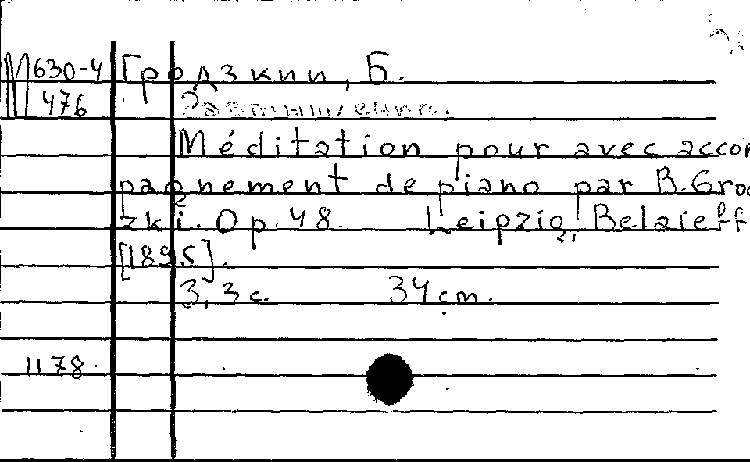 М 630-4 Гродзкий, Б.
476 Размышление.
Méditation pour avec accom
pagnement de piano par B. Grod
zki. Op. 48. Leipzig, Belaieff
[1895].
3, 3 с. 34 cm.
1178